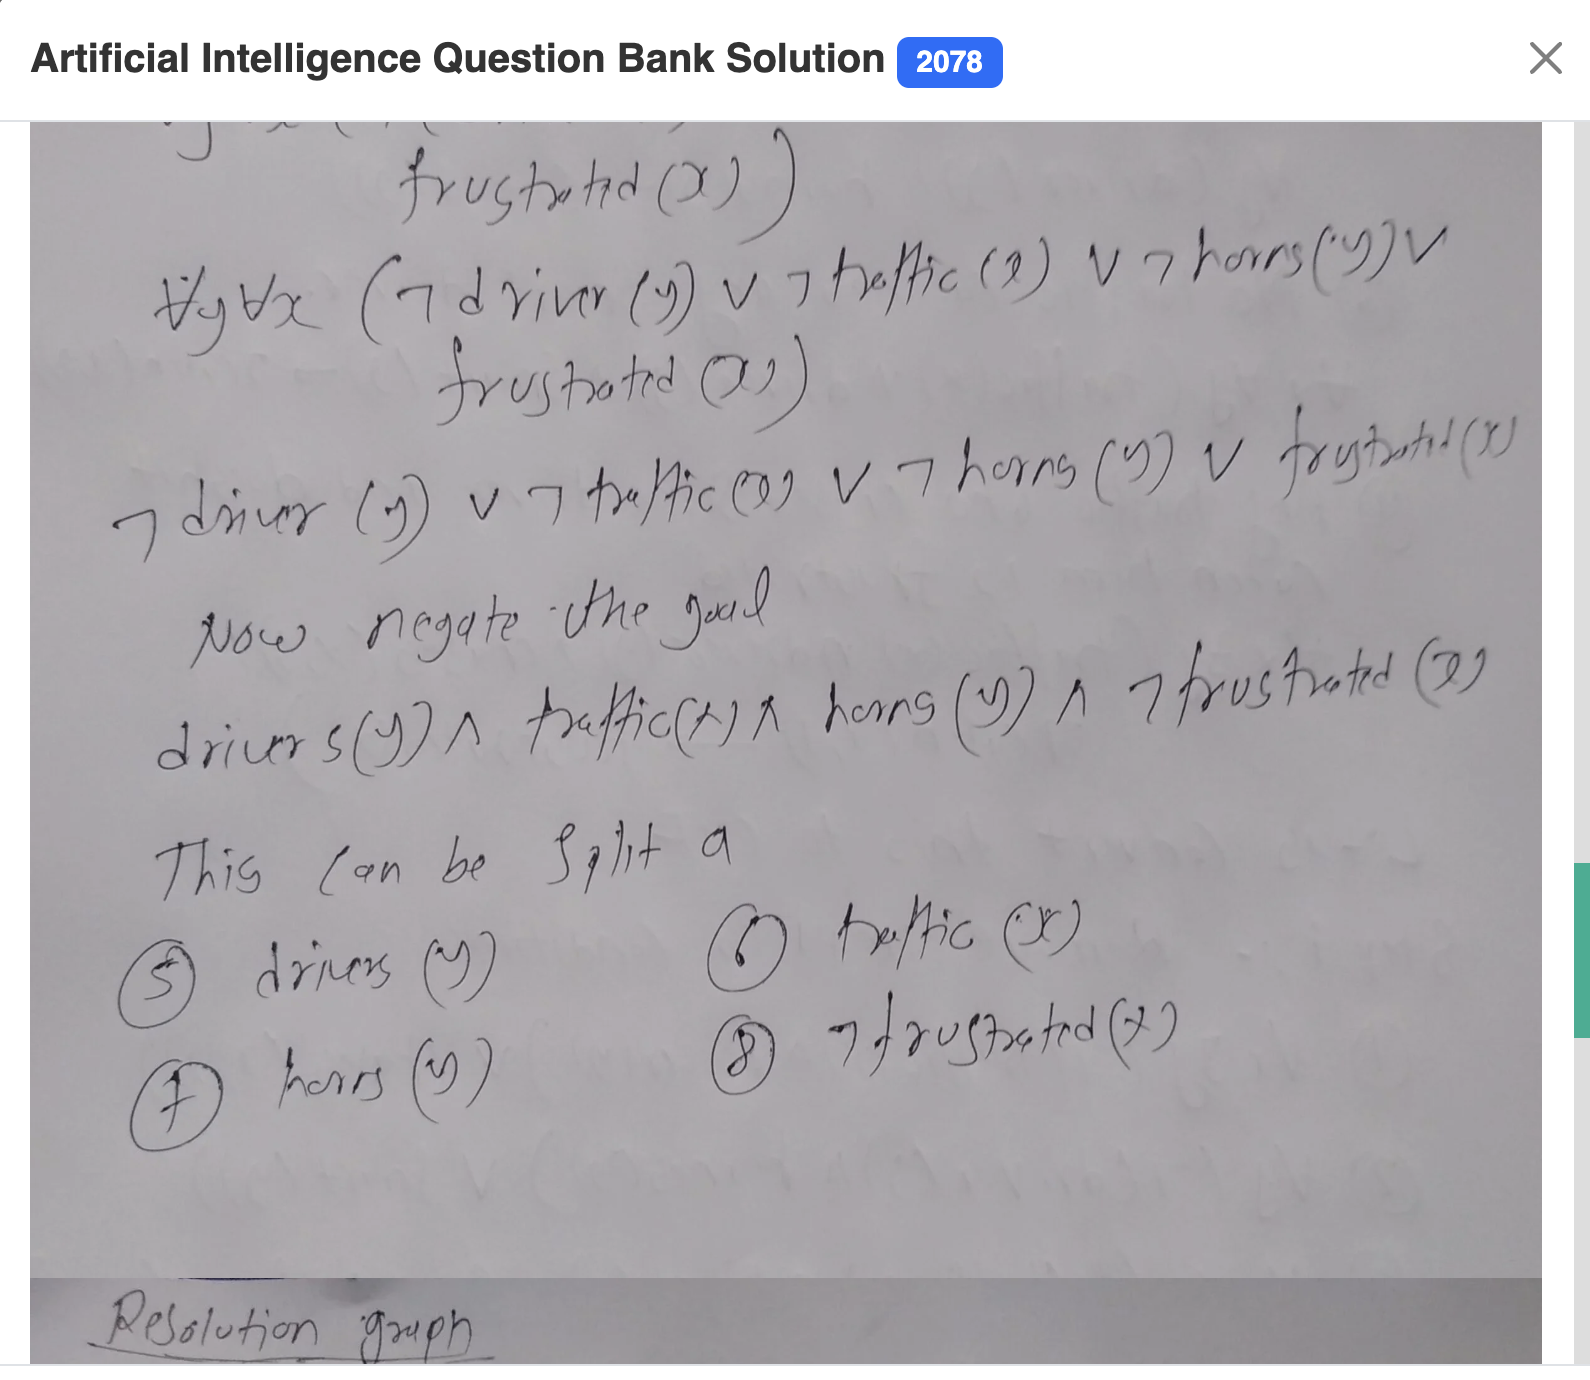 Artificial Intelligence Question Bank Solution 2078
frustrated (x))
∀y∀x (¬driver (y) ∨ ¬traffic (x) ∨ ¬horns(y) ∨
frustrated (x))
¬driver (y) ∨ ¬traffic (x) ∨ ¬horns (y) ∨ frustrated (x)
Now negate the goal
drivers(y) ∧ traffic(x) ∧ horns (y) ∧ ¬frustrated (x)
This can be split a
⑤ drivers (y) ⑥ traffic (x)
⑦ horns (y) ⑧ ¬frustrated (x)
Resolution graph